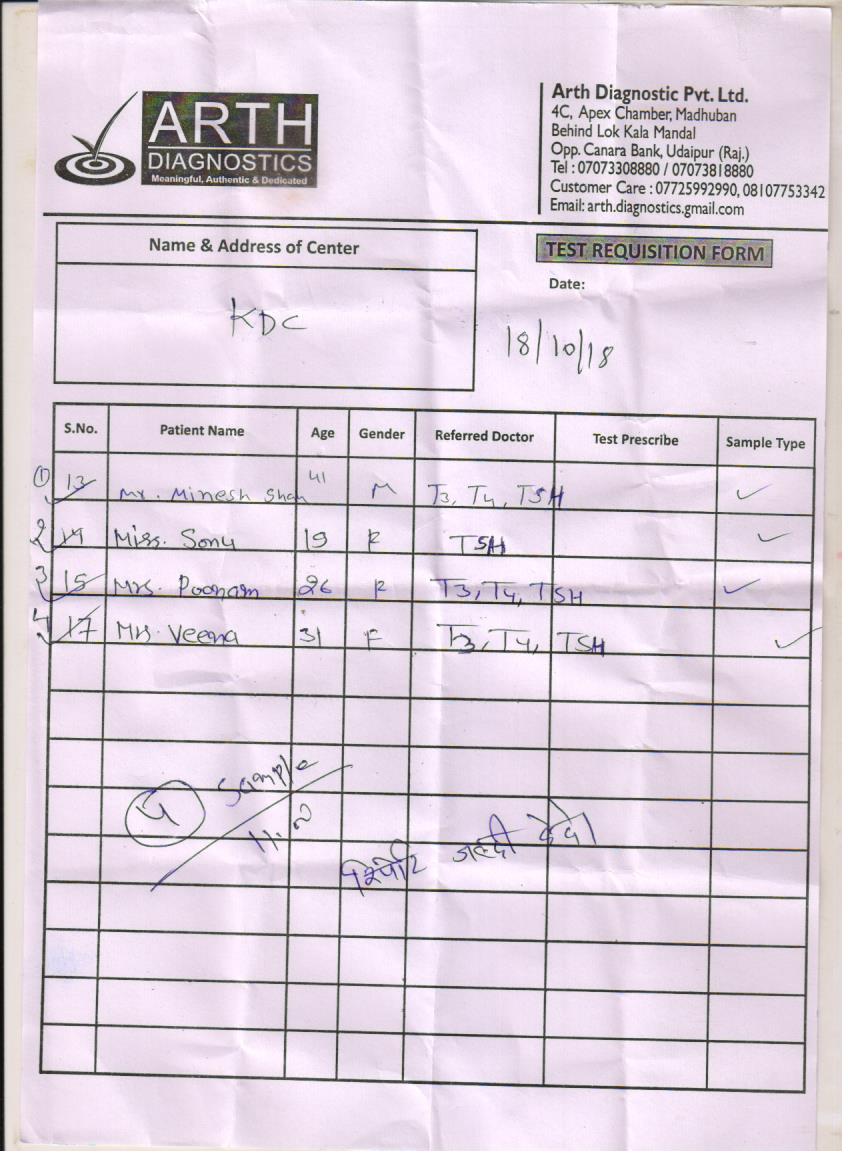 ARTH
DIAGNOSTICS
Meaningful, Authentic & Dedicated
Arth Diagnostic Pvt. Ltd.
4C, Apex Chamber, Madhuban
Behind Lok Kala Mandal
Opp. Canara Bank, Udaipur (Raj.)
Tel : 07073308880 / 07073818880
Customer Care : 07725992990, 08107753342
Email: arth.diagnostics.gmail.com
Name & Address of Center
KDC
TEST REQUISITION FORM
Date:
18/10/18
S.No. Patient Name Age Gender Referred Doctor Test Prescribe Sample Type
① 13 Mr. Minesh Shah 41 M T3, T4, TSH ✓
2 14 Miss. Sonu 19 F TSH ✓
3 15 Mrs. Poonam 26 F T3, T4, TSH ✓
4 17 Mrs. Veena 31 F T3, T4, TSH ✓
Sample
जल्दी